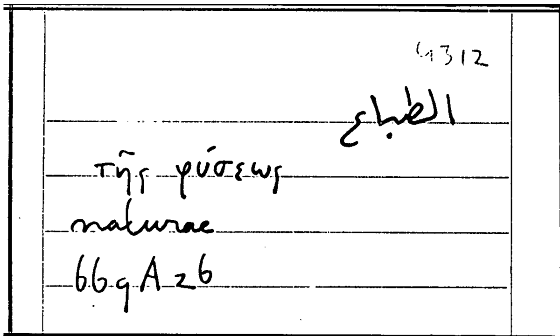 4312
الطباع
τῆς φύσεως
naturae
669 A 26